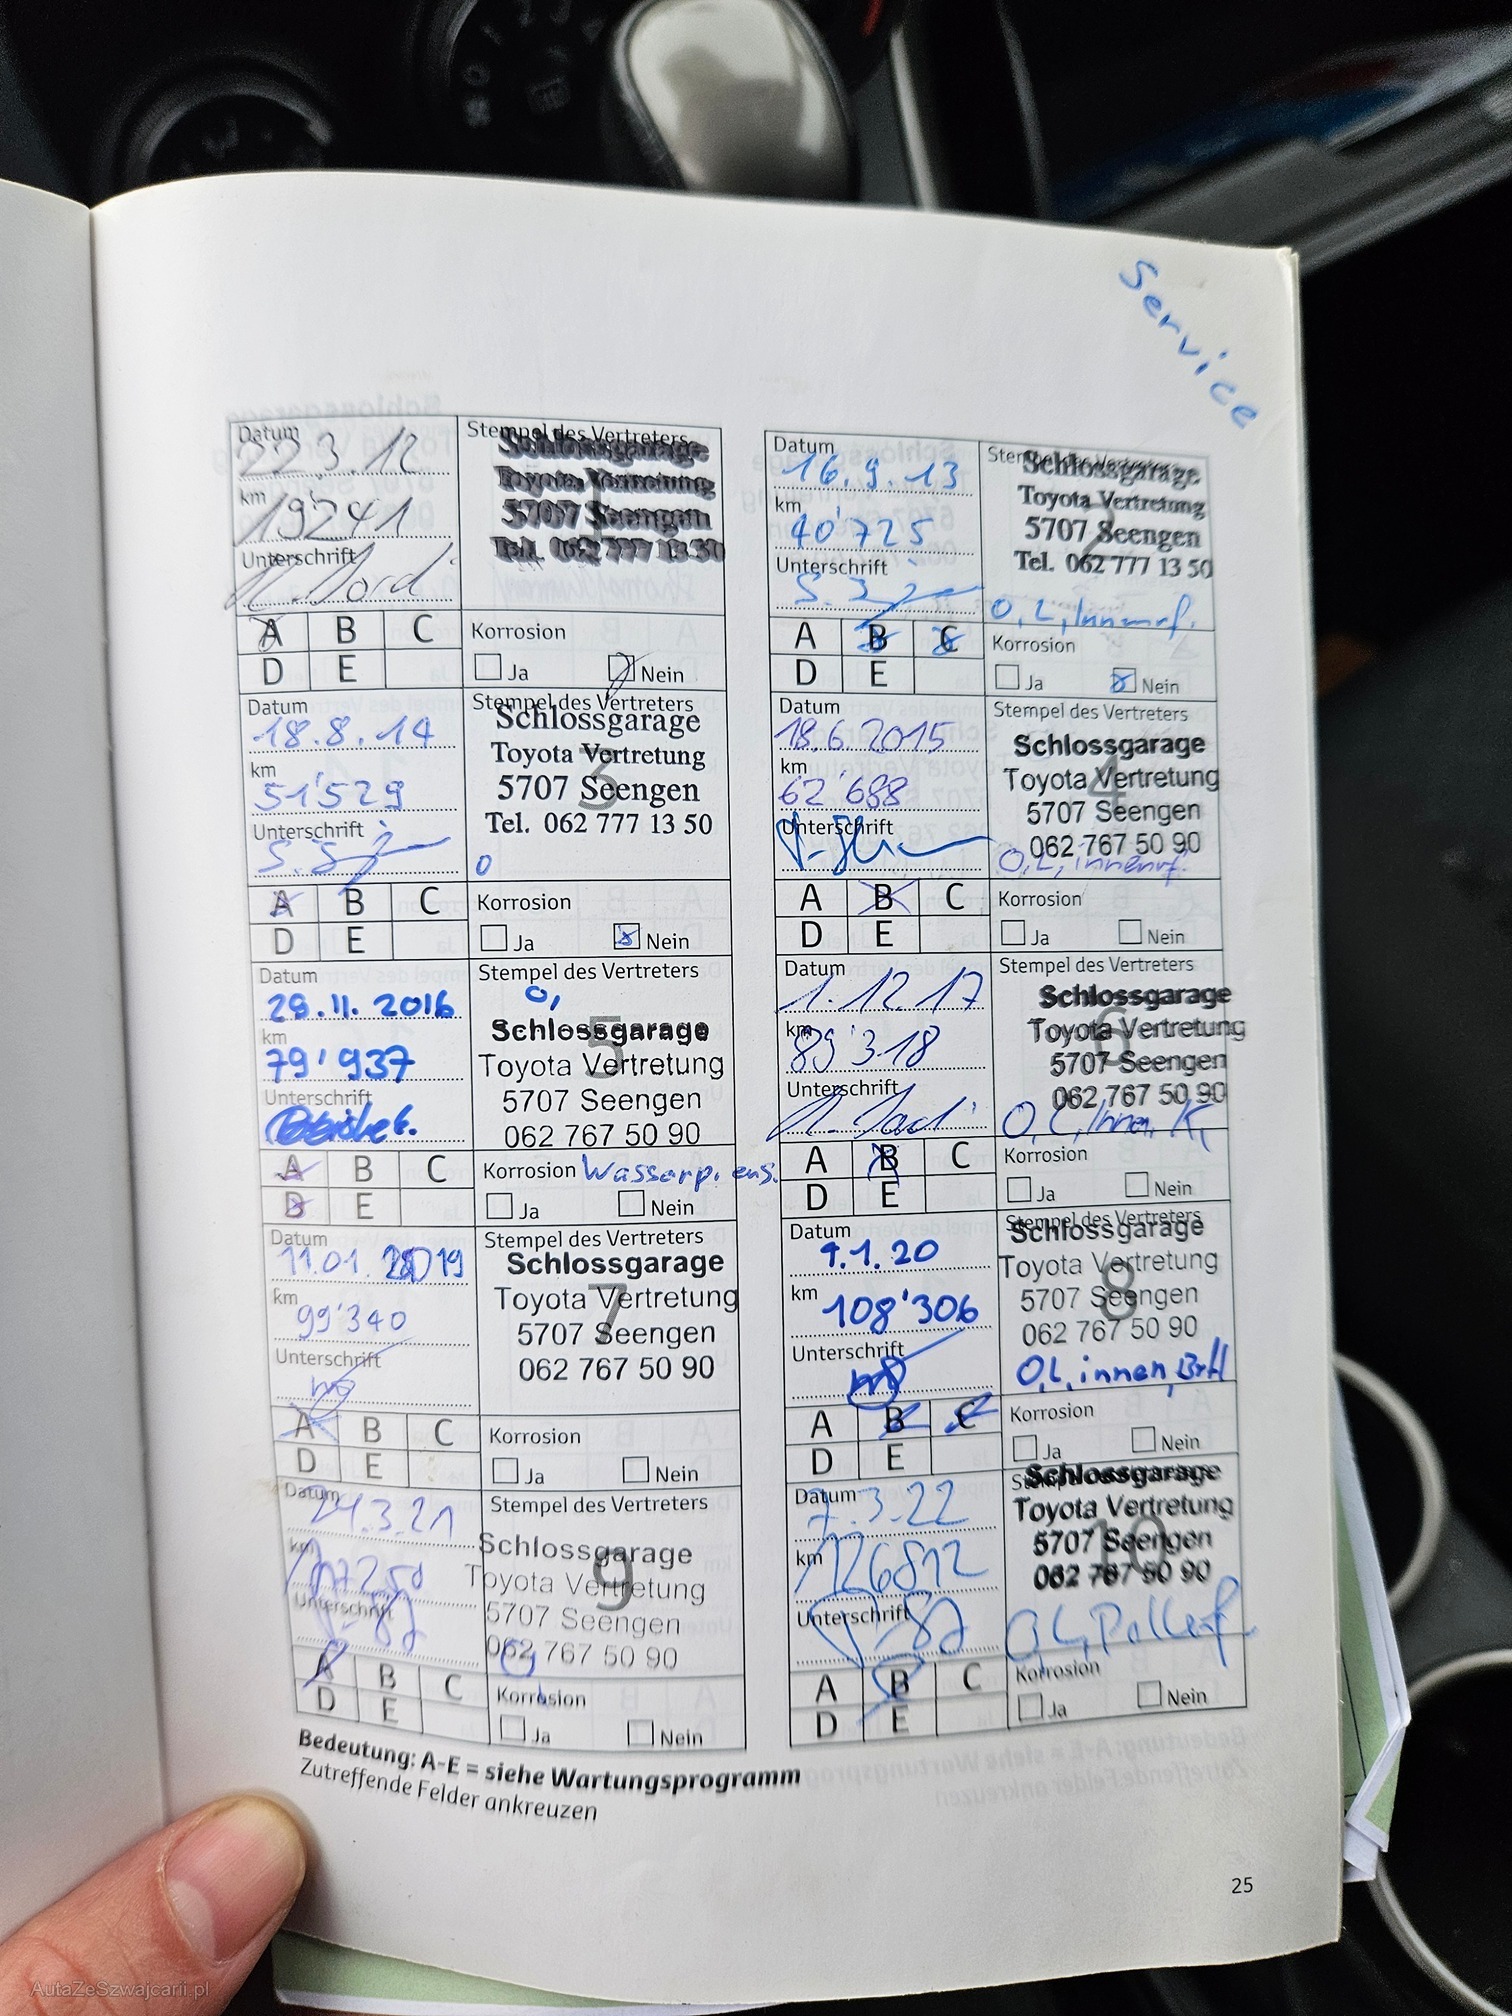 Service
Datum
22.3.12
km
19'241
Unterschrift
Stempel des Vertreters
Schlossgarage
Toyota Vertretung
5707 Seengen
Tel. 062 777 13 50
1
A B C
D E
Korrosion
Ja Nein
Datum
16.9.13
km
40'725
Unterschrift
Schlossgarage
Toyota Vertretung
5707 Seengen
Tel. 062 777 13 50
2
O, L, Innenrf.
A B C
D E
Korrosion
Ja Nein
Datum
18.8.14
km
51'529
Unterschrift
Stempel des Vertreters
Schlossgarage
Toyota Vertretung
5707 Seengen
Tel. 062 777 13 50
3
O
A B C
D E
Korrosion
Ja Nein
Datum
18.6.2015
km
62'688
Unterschrift
Stempel des Vertreters
Schlossgarage
Toyota Vertretung
5707 Seengen
062 767 50 90
4
O, L, innenrf.
A B C
D E
Korrosion
Ja Nein
Datum
29.11.2016
km
79'937
Unterschrift
Stempel des Vertreters
O,
Schlossgarage
Toyota Vertretung
5707 Seengen
062 767 50 90
5
A B C
D E
Korrosion Wasserp. ers.
Ja Nein
Datum
1.12.17
km
89'318
Unterschrift
Stempel des Vertreters
Schlossgarage
Toyota Vertretung
5707 Seengen
062 767 50 90
6
O, L, Innen, K,
A B C
D E
Korrosion
Ja Nein
Datum
11.01.2019
km
99'340
Unterschrift
Stempel des Vertreters
Schlossgarage
Toyota Vertretung
5707 Seengen
062 767 50 90
7
A B C
D E
Korrosion
Ja Nein
Datum
9.1.20
km
108'306
Unterschrift
Stempel des Vertreters
Schlossgarage
Toyota Vertretung
5707 Seengen
062 767 50 90
8
O, L, innen, Brfl
A B C
D E
Korrosion
Ja Nein
Datum
24.3.21
km
Unterschrift
Stempel des Vertreters
Schlossgarage
Toyota Vertretung
5707 Seengen
062 767 50 90
9
A B C
D E
Korrosion
Ja Nein
Datum
7.3.22
km
126812
Unterschrift
Schlossgarage
Toyota Vertretung
5707 Seengen
062 767 50 90
10
O, L, Pollenf
A B C
D E
Korrosion
Ja Nein
Bedeutung: A-E = siehe Wartungsprogramm
Zutreffende Felder ankreuzen
25
AutaZeSzwajcarii.pl